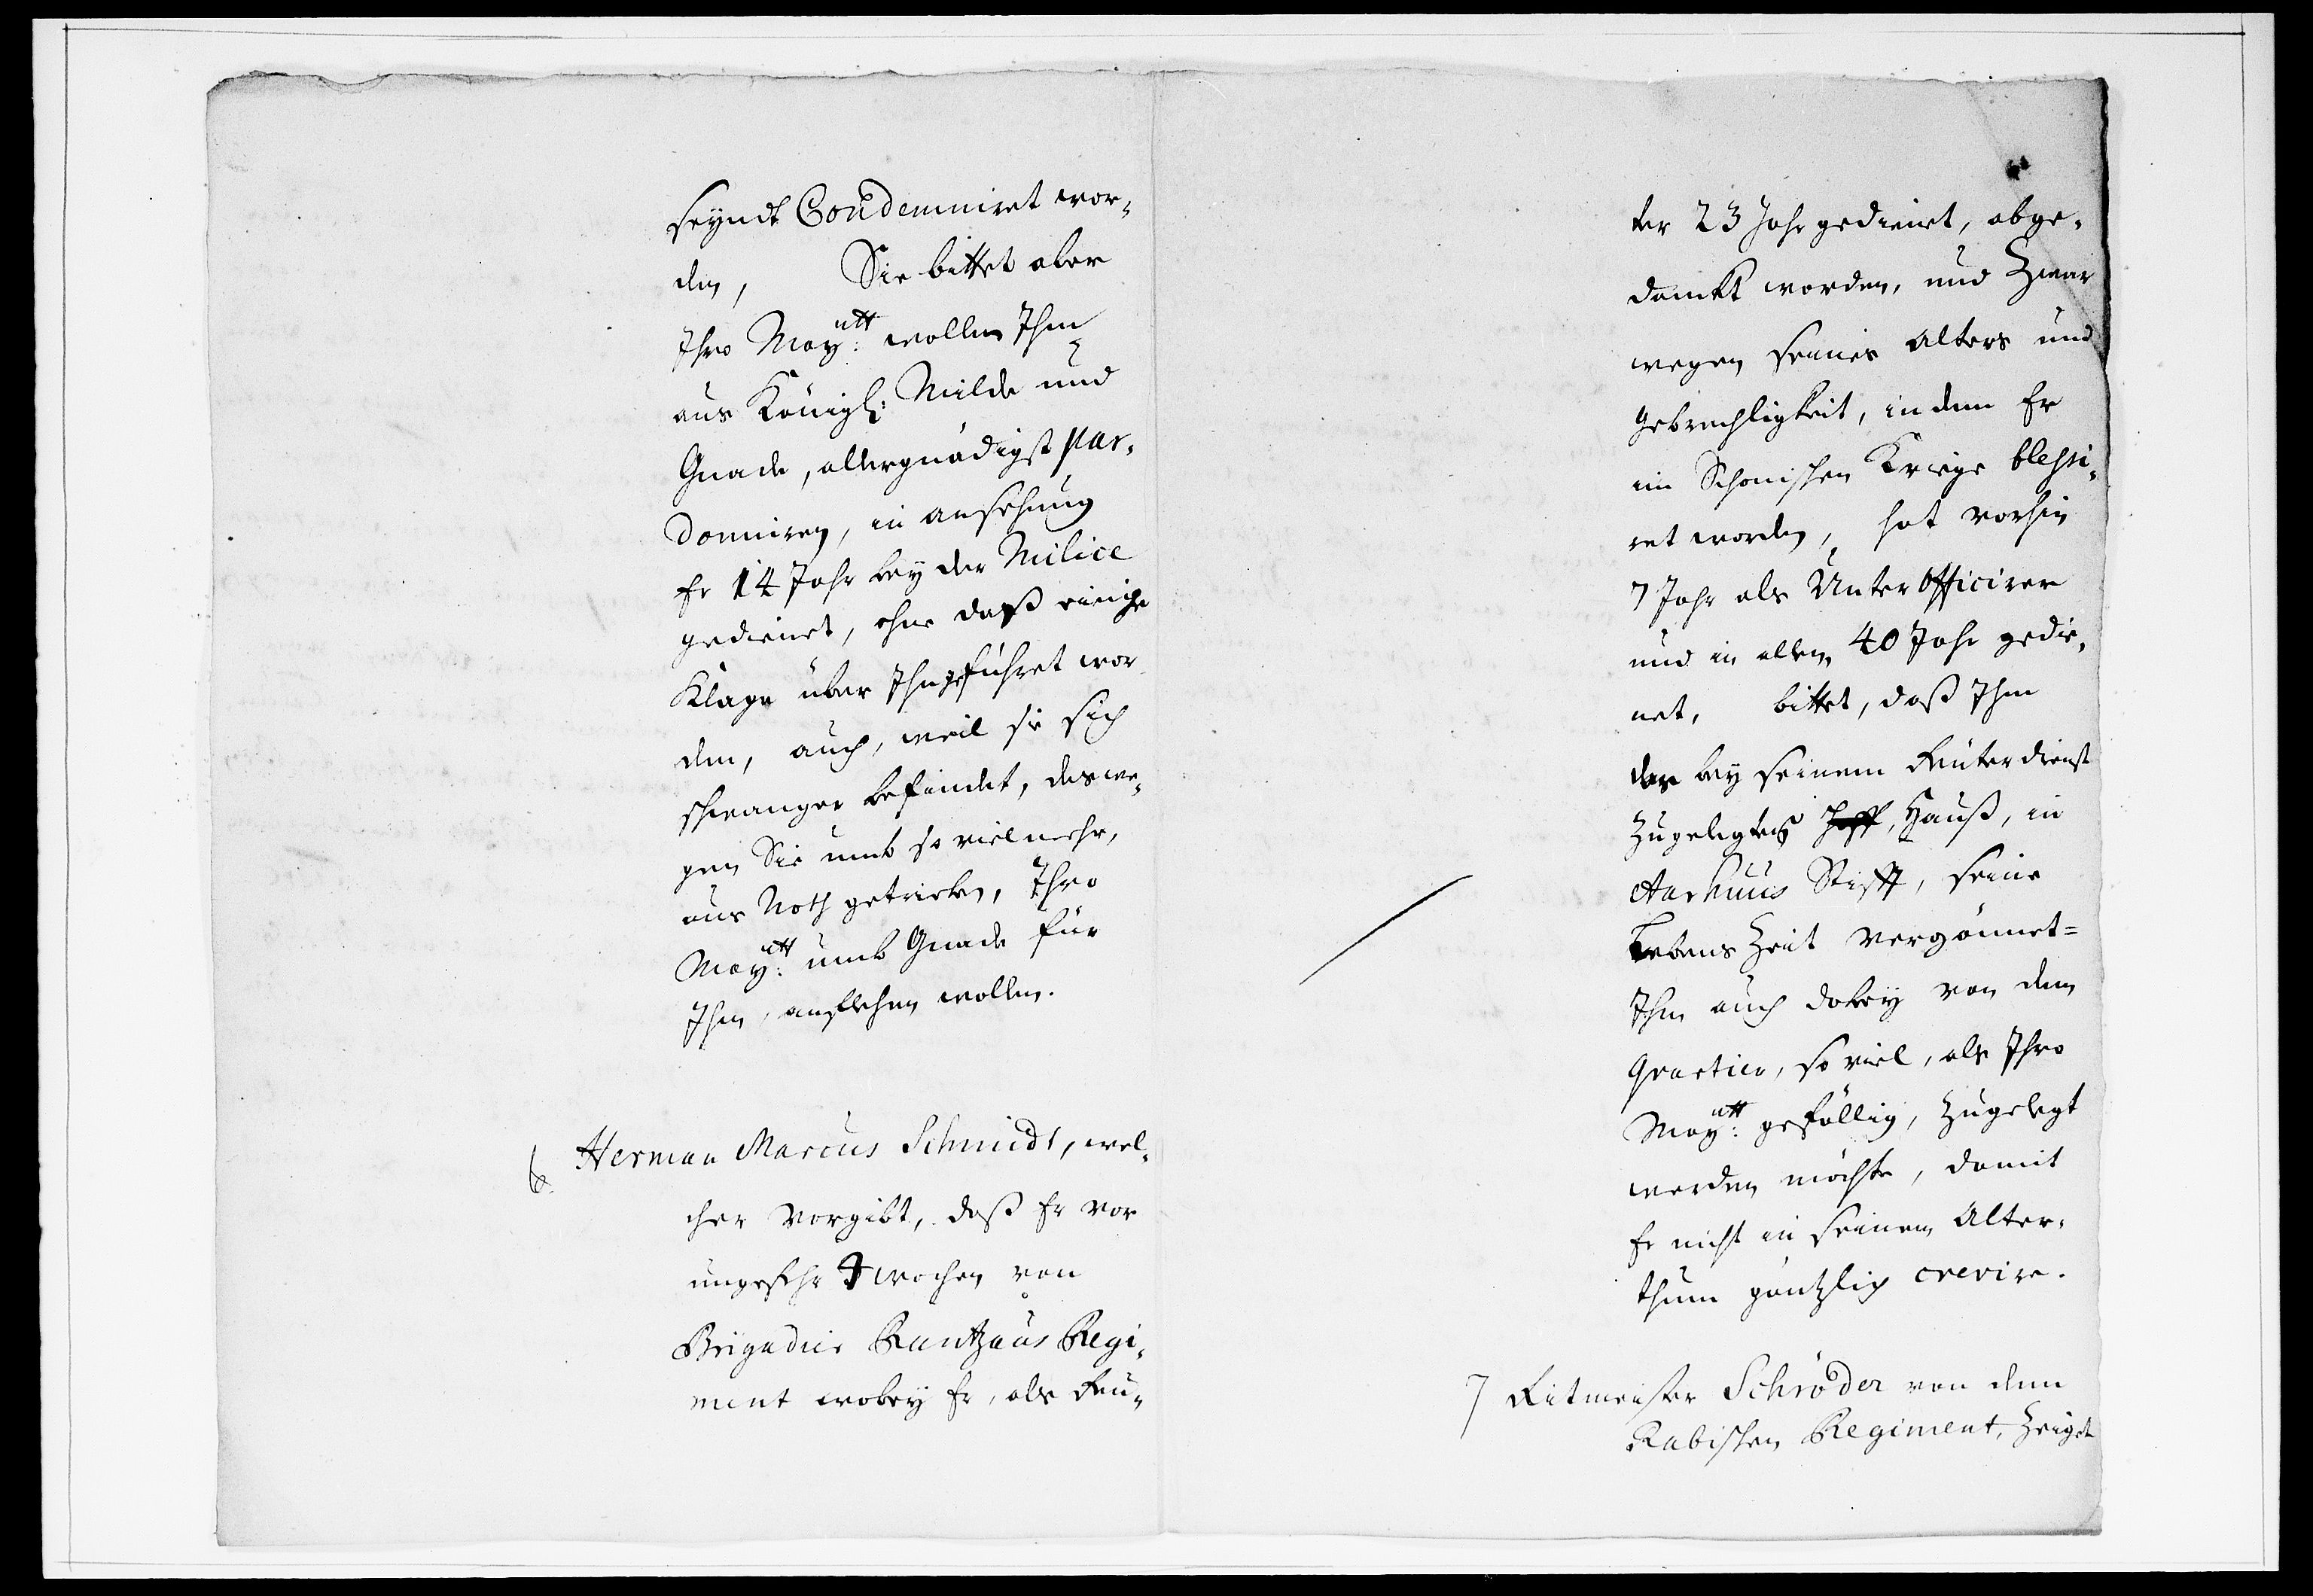 seyndt Condemniret wor-
den, Sie bittet aber
Ihro May:ett wollen Ihm
aus Königl: Milde und
Gnade, allergnädigst par-
donniren, in ansehung
Er 14 Jahr bey der Milice
gedienet, ohne daß einige
Klage über Ihn geführet wor
den, auch, weil sie sich
schwanger befindet, deswe-
gen Sie umb so viel mehr,
aus Noth getrieben, Ihro
May:ett umb Gnade für
Ihm, anflehen wollen.
6. Herman Marcus Schmidt, wel-
cher vorgibt, daß Er vor
ungefehr wochen von
Brigadier Rantzaus Regi-
ment wobey Er, als Reu-
ter 23 Jahr gedienet, abge-
danckt worden, und Zwar
wegen seines Alters und
Gebrechligkeit, in dem Er
im Schonischen Kriege blessi-
ret worden, hat vorhin
7 Jahr als Unter Officirer
und in allem 40 Jahr gedie-
net, bittet, daß Ihm
der bey seinem Reuter dienst
Zugelegtes Hoff, Hauß, in
Aarhuus Stifft, seine
Lebens Zeit vergönnet=
Ihm auch dabey von dem
Qvartier, so viel, als Ihro
May:ett gefällig, Zugelegt
werden möchte, damit
Er nicht in seinem Alter-
thum gäntzlich crevire.
7 Ritmeister Schröder von dem
Rabischen Regiment, Zeiget